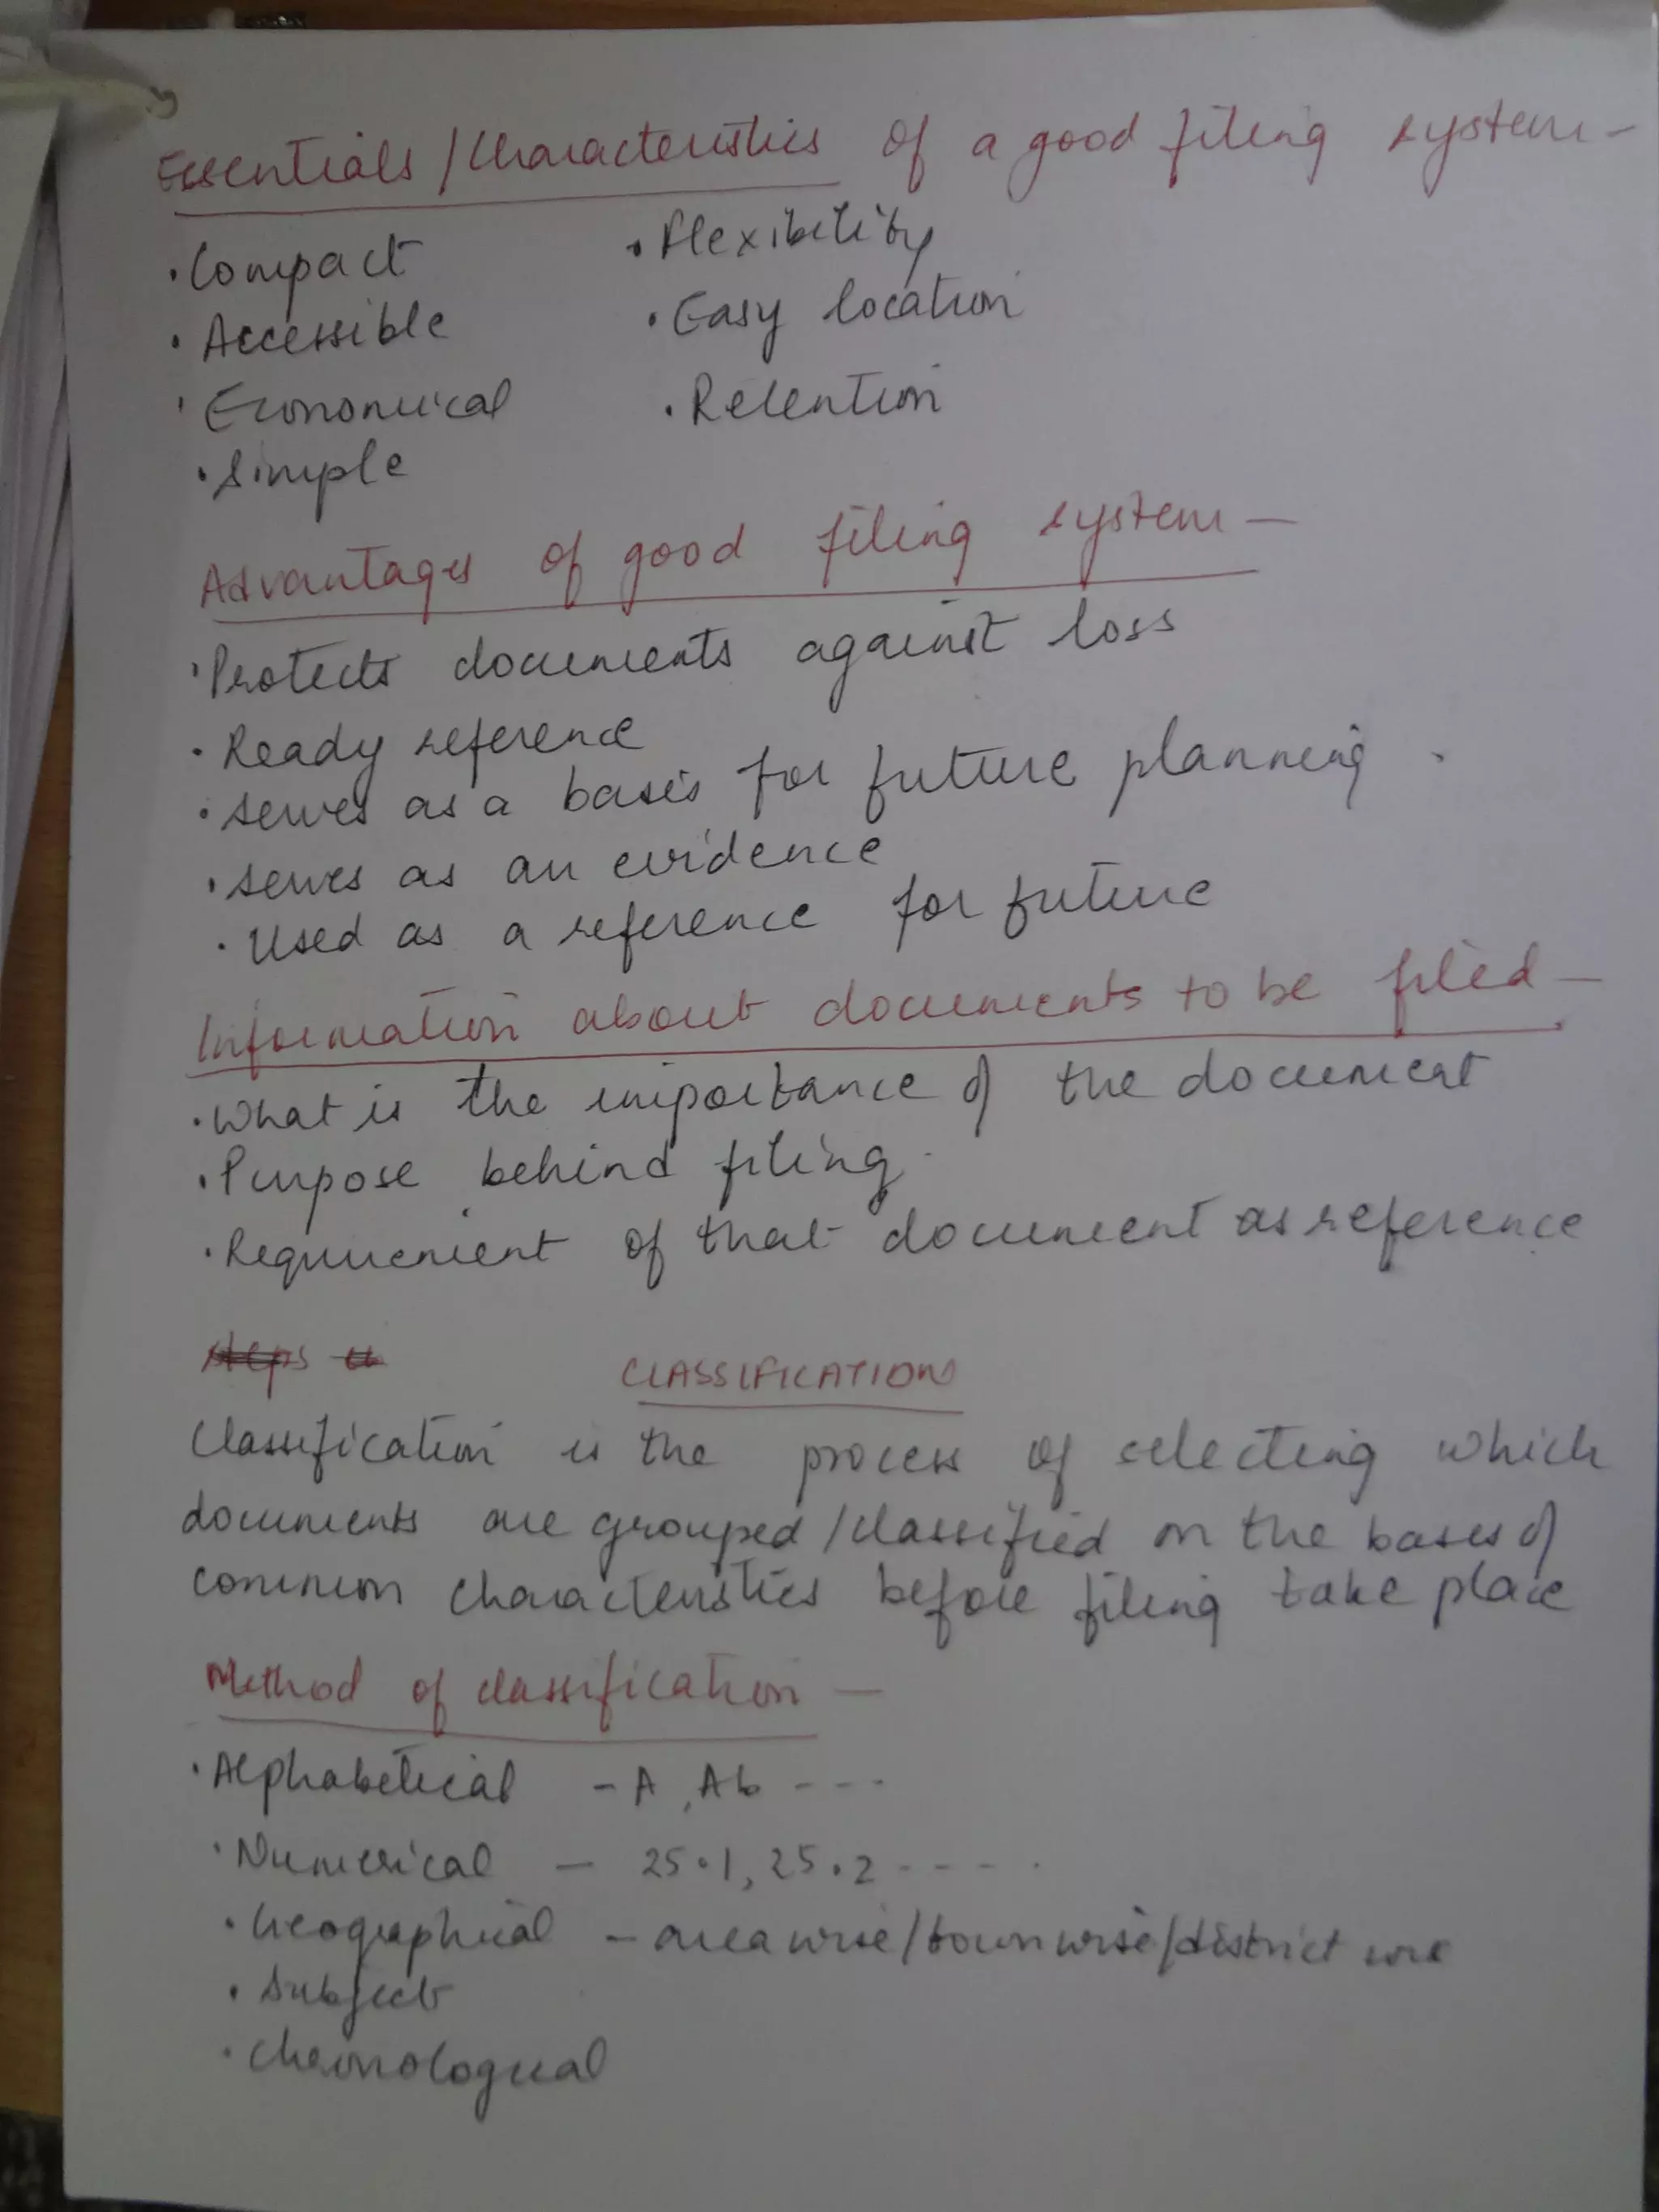 Essentials/Characteristics of a good filing system-
• Compact
• Flexibility
• Accessible
• Easy location
• Economical
• Retention
• Simple
Advantages of good filing system -
• Protects documents against loss
• Ready reference
• serves as a basis for future planning.
• serves as an evidence
• Used as a reference for future
Information about documents to be filed -
• What is the importance of the document
• Purpose behind filing.
• Requirement of that document as reference
steps
CLASSIFICATION
Classification is the process of selecting which
documents are grouped/classified on the bases of
common characteristics before filing take place
Method of classification -
• Alphabetical - A, Ab ---
• Numerical - 25.1, 25.2 ----
• Geographical - area wise/town wise/district wise
• Subject
• Chronological